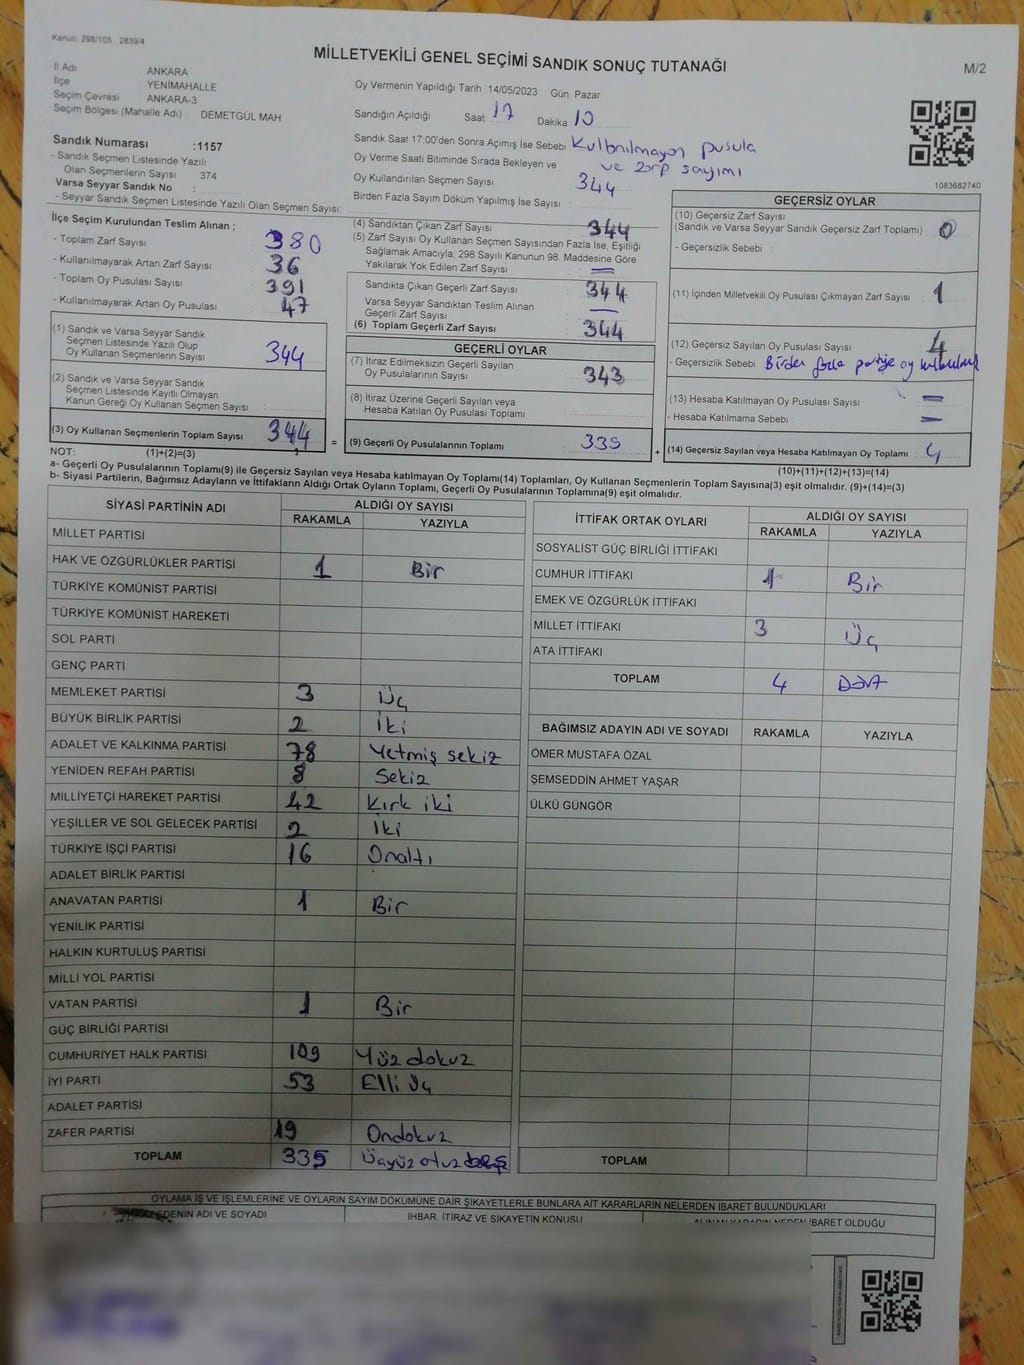 Kanun: 298/105 , 2839/4
MİLLETVEKİLİ GENEL SEÇİMİ SANDIK SONUÇ TUTANAĞI
M/2
İl Adı : ANKARA
İlçe : YENİMAHALLE
Seçim Çevresi : ANKARA-3
Seçim Bölgesi (Mahalle Adı) : DEMETGÜL MAH
Sandık Numarası :1157
- Sandık Seçmen Listesinde Yazılı
Olan Seçmenlerin Sayısı : 374
Varsa Seyyar Sandık No :
- Seyyar Sandık Seçmen Listesinde Yazılı Olan Seçmen Sayısı :
Oy Vermenin Yapıldığı Tarih : 14/05/2023 Gün: Pazar
Sandığın Açıldığı Saat: 17 Dakika: 10
Sandık Saat 17:00'den Sonra Açımış İse Sebebi : Kullanılmayan pusula
ve zarp sayımı
Oy Verme Saati Bitiminde Sırada Bekleyen ve
Oy Kullandırılan Seçmen Sayısı : 344
Birden Fazla Sayım Döküm Yapılmış İse Sayısı :
1083682740
İlçe Seçim Kurulundan Teslim Alınan ;
- Toplam Zarf Sayısı : 380
- Kullanılmayarak Artan Zarf Sayısı : 36
- Toplam Oy Pusulası Sayısı : 391
- Kullanılmayarak Artan Oy Pusulası : 47
(1) Sandık ve Varsa Seyyar Sandık
Seçmen Listesinde Yazılı Olup
Oy Kullanan Seçmenlerin Sayısı : 344
(2) Sandık ve Varsa Seyyar Sandık
Seçmen Listesinde Kayıtlı Olmayan
Kanun Gereği Oy Kullanan Seçmen Sayısı :
(3) Oy Kullanan Seçmenlerin Toplam Sayısı : 344
(1)+(2)=(3)
(4) Sandıktan Çıkan Zarf Sayısı : 344
(5) Zarf Sayısı Oy Kullanan Seçmen Sayısından Fazla İse, Eşitliği
Sağlamak Amacıyla, 298 Sayılı Kanunun 98. Maddesine Göre
Yakılarak Yok Edilen Zarf Sayısı : —
Sandıkta Çıkan Geçerli Zarf Sayısı : 344
Varsa Seyyar Sandıktan Teslim Alınan
Geçerli Zarf Sayısı : —
(6) Toplam Geçerli Zarf Sayısı : 344
GEÇERLİ OYLAR
(7) İtiraz Edilmeksizin Geçerli Sayılan
Oy Pusulalarının Sayısı : 343
(8) İtiraz Üzerine Geçerli Sayılan veya
Hesaba Katılan Oy Pusulası Toplamı :
= (9) Geçerli Oy Pusulalarının Toplamı : 335 +
GEÇERSİZ OYLAR
(10) Geçersiz Zarf Sayısı
(Sandık ve Varsa Seyyar Sandık Geçersiz Zarf Toplamı) : 0
- Geçersizlik Sebebi :
(11) İçinden Milletvekili Oy Pusulası Çıkmayan Zarf Sayısı : 1
(12) Geçersiz Sayılan Oy Pusulası Sayısı : 4
- Geçersizlik Sebebi : Birden fazla partiye oy
(13) Hesaba Katılmayan Oy Pusulası Sayısı : —
- Hesaba Katılmama Sebebi : —
(14) Geçersiz Sayılan veya Hesaba Katılmayan Oy Toplamı : 4
(10)+(11)+(12)+(13)=(14)
NOT:
a- Geçerli Oy Pusulalarının Toplamı(9) ile Geçersiz Sayılan veya Hesaba katılmayan Oy Toplamı(14) Toplamları, Oy Kullanan Seçmenlerin Toplam Sayısına(3) eşit olmalıdır. (9)+(14)=(3)
b- Siyasi Partilerin, Bağımsız Adayların ve İttifakların Aldığı Ortak Oyların Toplamı, Geçerli Oy Pusulalarının Toplamına(9) eşit olmalıdır.
SİYASİ PARTİNİN ADI ALDIĞI OY SAYISI
RAKAMLA YAZIYLA
MİLLET PARTİSİ
HAK VE ÖZGÜRLÜKLER PARTİSİ 1 Bir
TÜRKİYE KOMÜNİST PARTİSİ
TÜRKİYE KOMÜNİST HAREKETİ
SOL PARTİ
GENÇ PARTİ
MEMLEKET PARTİSİ 3 Üç
BÜYÜK BİRLİK PARTİSİ 2 İki
ADALET VE KALKINMA PARTİSİ 78 Yetmiş sekiz
YENİDEN REFAH PARTİSİ 8 Sekiz
MİLLİYETÇİ HAREKET PARTİSİ 42 Kırk iki
YEŞİLLER VE SOL GELECEK PARTİSİ 2 İki
TÜRKİYE İŞÇİ PARTİSİ 16 Onaltı
ADALET BİRLİK PARTİSİ
ANAVATAN PARTİSİ 1 Bir
YENİLİK PARTİSİ
HALKIN KURTULUŞ PARTİSİ
MİLLİ YOL PARTİSİ
VATAN PARTİSİ 1 Bir
GÜÇ BİRLİĞİ PARTİSİ
CUMHURİYET HALK PARTİSİ 109 Yüz dokuz
İYİ PARTİ 53 Elli Üç
ADALET PARTİSİ
ZAFER PARTİSİ 19 Ondokuz
TOPLAM 335 Üçyüz otuz beş
İTTİFAK ORTAK OYLARI ALDIĞI OY SAYISI
RAKAMLA YAZIYLA
SOSYALİST GÜÇ BİRLİĞİ İTTİFAKI
CUMHUR İTTİFAKI 1 Bir
EMEK VE ÖZGÜRLÜK İTTİFAKI
MİLLET İTTİFAKI 3 Üç
ATA İTTİFAKI
TOPLAM 4 Dört
BAĞIMSIZ ADAYIN ADI VE SOYADI RAKAMLA YAZIYLA
ÖMER MUSTAFA ÖZAL
ŞEMSEDDİN AHMET YAŞAR
ÜLKÜ GÜNGÖR
TOPLAM
OYLAMA İŞ VE İŞLEMLERİNE VE OYLARIN SAYIM DÖKÜMÜNE DAİR ŞİKAYETLERLE BUNLARA AİT KARARLARIN NELERDEN İBARET BULUNDUKLARI
EDENİN ADI VE SOYADI İHBAR, İTİRAZ VE ŞİKAYETİN KONUSU ALINAN KARARIN NEDEN İBARET OLDUĞU